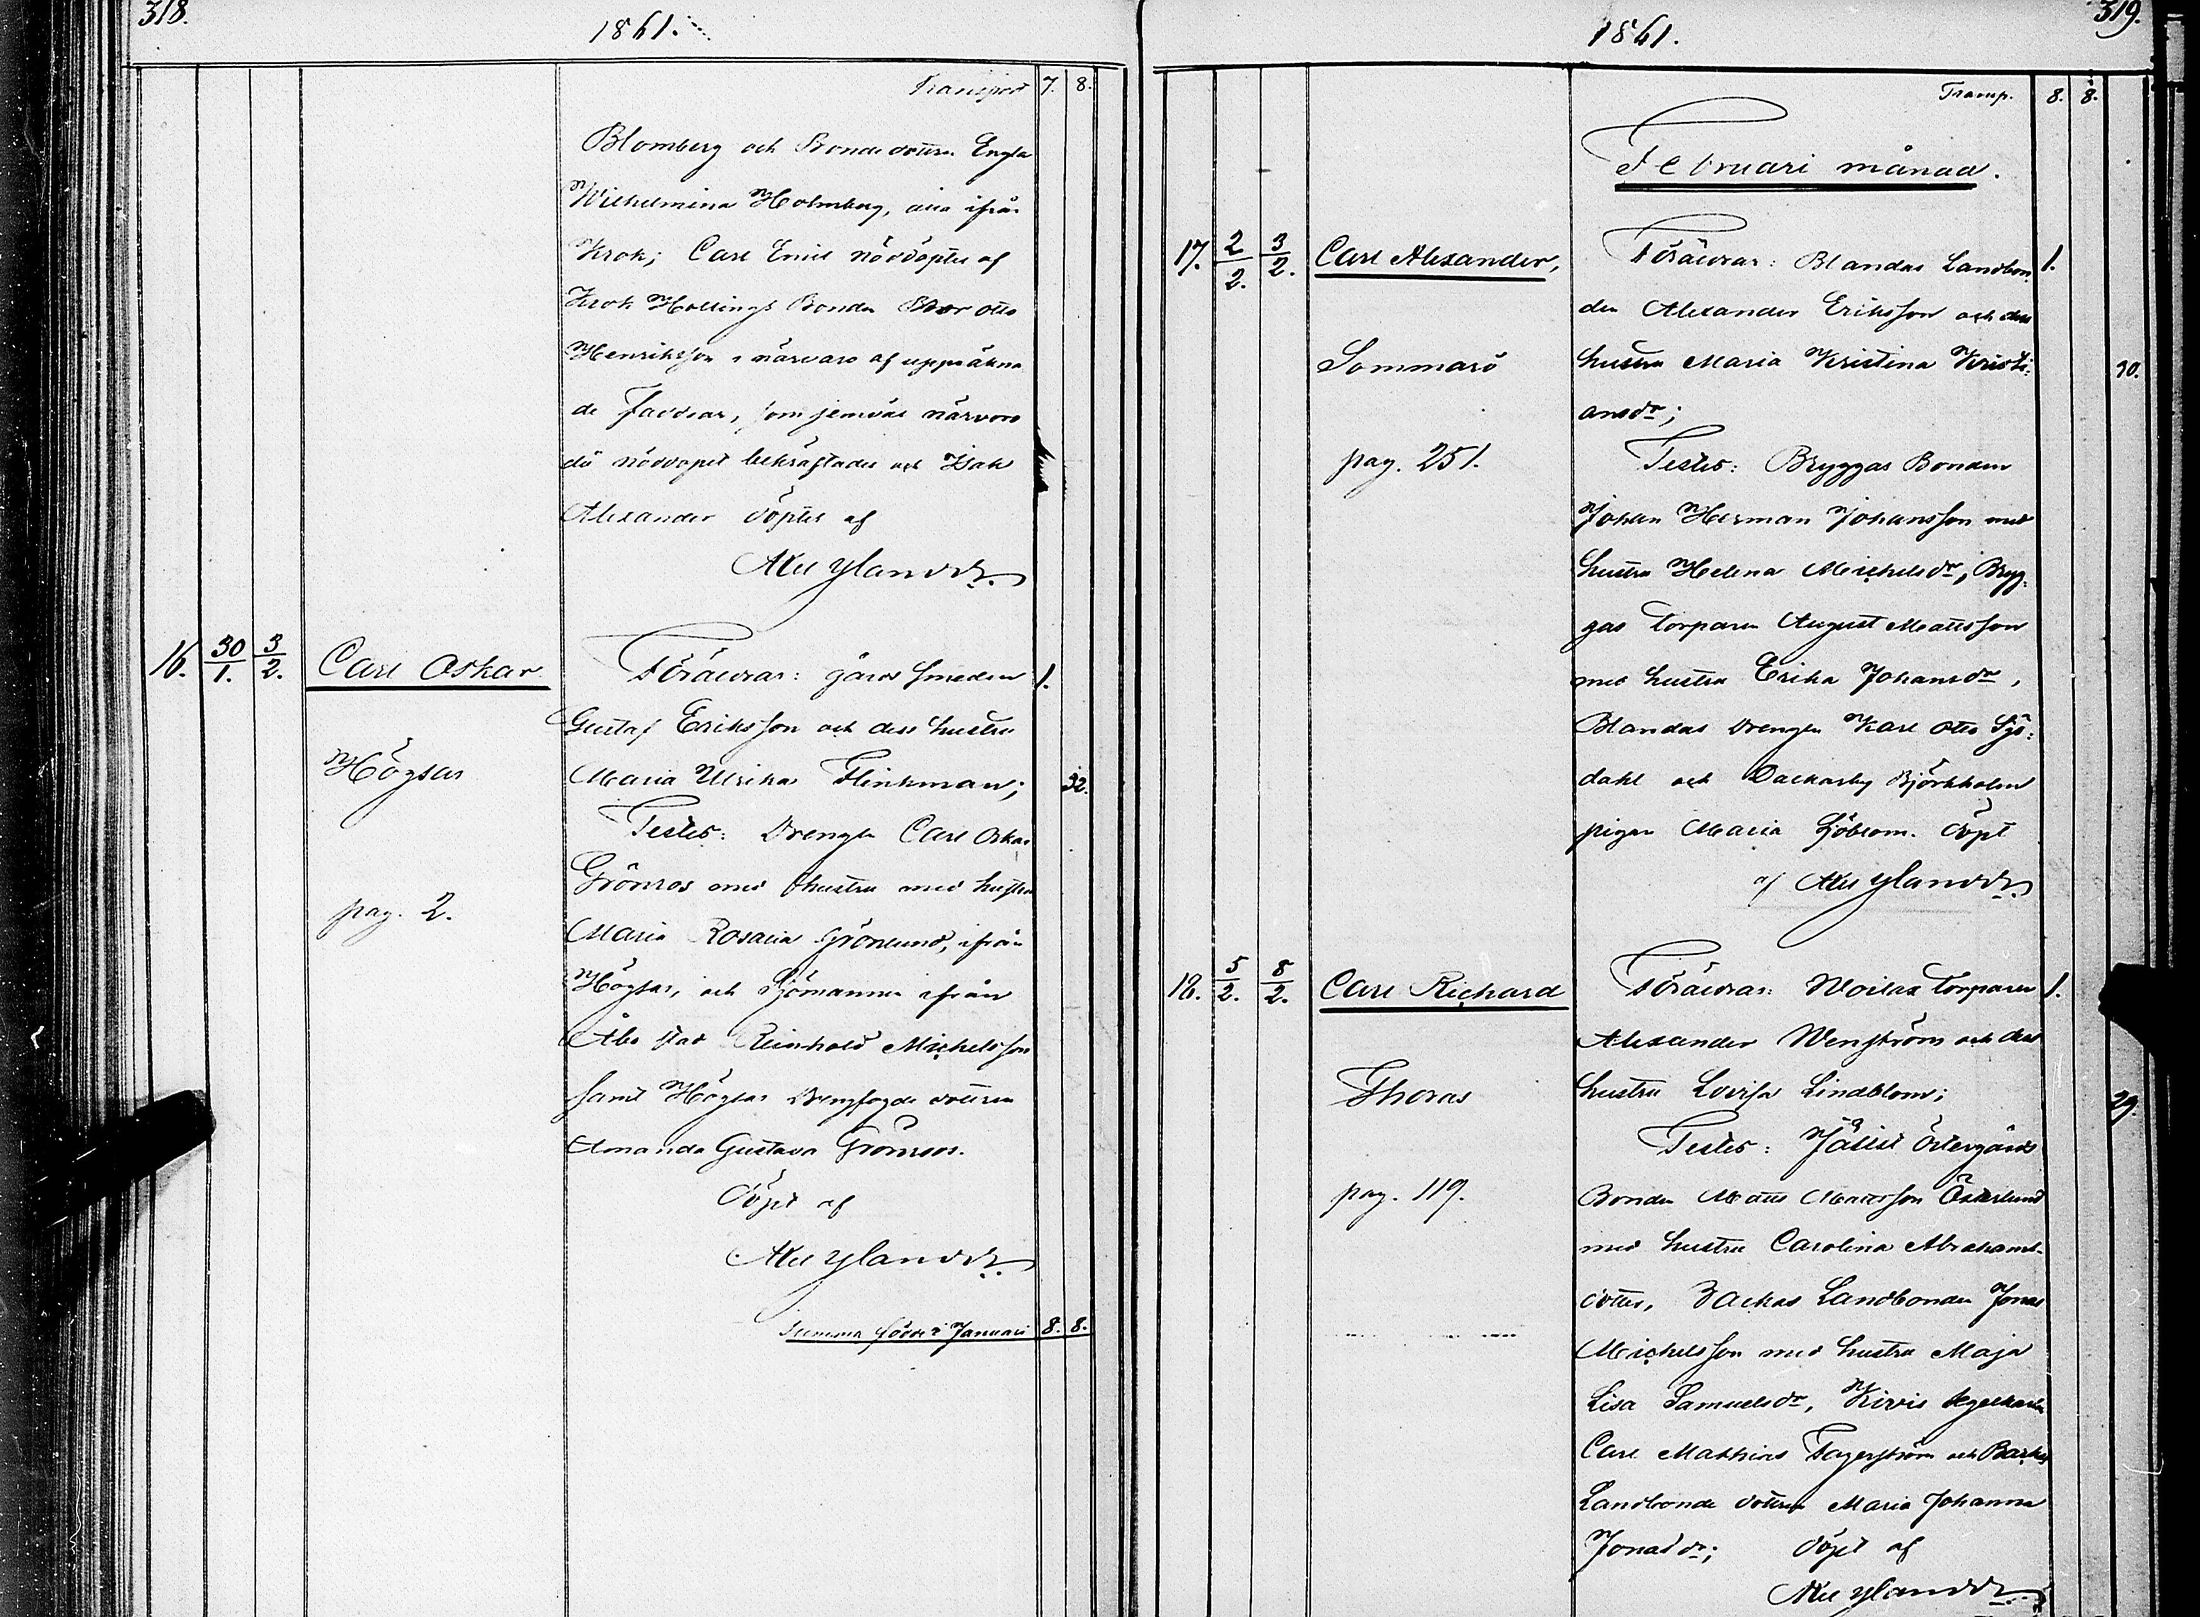 318.
1861.
Transport 7. 8.
Blomberg och Bondedottren Engla
Wilhelmina Holmberg, alla ifrån
Krok; Carl Emil nöddöptes af
Krok Hollings Bonden Otto
Henriksson i närvaro af uppräkna
de faddrar, som jemväl närvoro
då nöddopet bekräftades och Isak
Alexander döptes af
Ylander.
16. 30/1. 3/2. Carl Oskar Föräldrar: gårds smeden 1.
Gustaf Eriksson och dess hustru
Högsar Maria Ulrika Flinkman; 32.
Testes: Drengen Carl Oskar
Grönros med hustru med hustru
pag. 2. Maria Rosalia Grönlund, ifrån
Högsar, och Sjömannen ifrån
Åbo stad Reinhold Michelsson
samt Högsar dottren
Amanda Gustava Grönroos.
Döpt af
Ylander.
Summa födde i Januari 8. 8.
319.
1861.
Transp. 8. 8.
Februari månad.
17. 2/2. 3/2. Carl Alexander, Föräldrar: Blandas Landbon 1.
den Alexander Eriksson och dess
Sommarö hustru Maria Kristina Kristi: 30.
ansdr;
pag. 251. Testes: Bryggas Bonden
Johan Herman Johansson med
hustru Helena Michelsdr, Bryg:
gas Torparen August Mattsson
med hustru Erika Johansdr,
Blandas Drengen Karl Otto Sjö:
dahl och Björkholm
pigan Maria Sjöblom. Döpt
af Ylander.
18. 5/2. 8/2. Carl Richard Föräldrar: Torparen 1.
Alexander Wenström och dess
Thoras hustru Lovisa Lindblom; 29.
Testes: Östergårds
pag. 119. Bonden Matts Mattsson Österlund
med hustru Carolina Abrahams-
dotter, Backas Landbonden Jonas
Michelsson med hustru Maja
Lisa Samuelsdr, Kivis
Carl Mathias Fagerström och Backas
Landbonde dottren Maria Johanna
Jonasdr; Döpt af
Ylander.